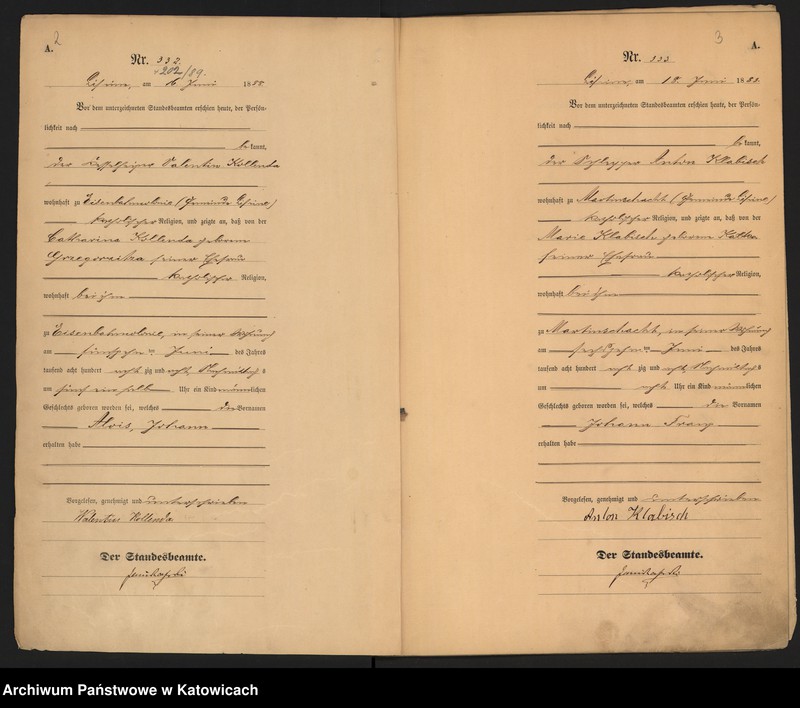 A. 2
Nr. 332.
202/89.
am 16 Juni 1888
Vor dem unterzeichneten Standesbeamten erschien heute, der Persön-
lichkeit nach
bekannt,
der Valentin Kollenda
wohnhaft zu Eisenbahnkolonie (Gemeinde
katholischer Religion, und zeigte an, daß von der
Catharina Kollenda geborenen
seiner Ehefrau
katholischer Religion,
wohnhaft bei ihm
zu Eisenbahnkolonie, in seiner Wohnung
am fünfzehnten Juni des Jahres
tausend acht hundert achtzig und acht, Nachmittags
um fünf ein halb Uhr ein Kind männlichen
Geschlechts geboren worden sei, welches den Vornamen
Alois, Johann
erhalten habe
Vorgelesen, genehmigt und unterschrieben
Valentin Kollenda
Der Standesbeamte.
3 A.
Nr. 333
am 18. Juni 1888.
Vor dem unterzeichneten Standesbeamten erschien heute, der Persön-
lichkeit nach
bekannt,
der Schlepper Anton Klabisch
wohnhaft zu Martinschacht (Gemeinde
katholischer Religion, und zeigte an, daß von der
Marie Klabisch geborenen
seiner Ehefrau
katholischer Religion,
wohnhaft bei ihm
zu Martinschacht, in seiner Wohnung
am sechszehnten Juni des Jahres
tausend acht hundert achtzig und acht, Nachmittags
um acht Uhr ein Kind männlichen
Geschlechts geboren worden sei, welches den Vornamen
Johann Franz
erhalten habe
Vorgelesen, genehmigt und unterschrieben
Anton Klabisch
Der Standesbeamte.
Archiwum Państwowe w Katowicach